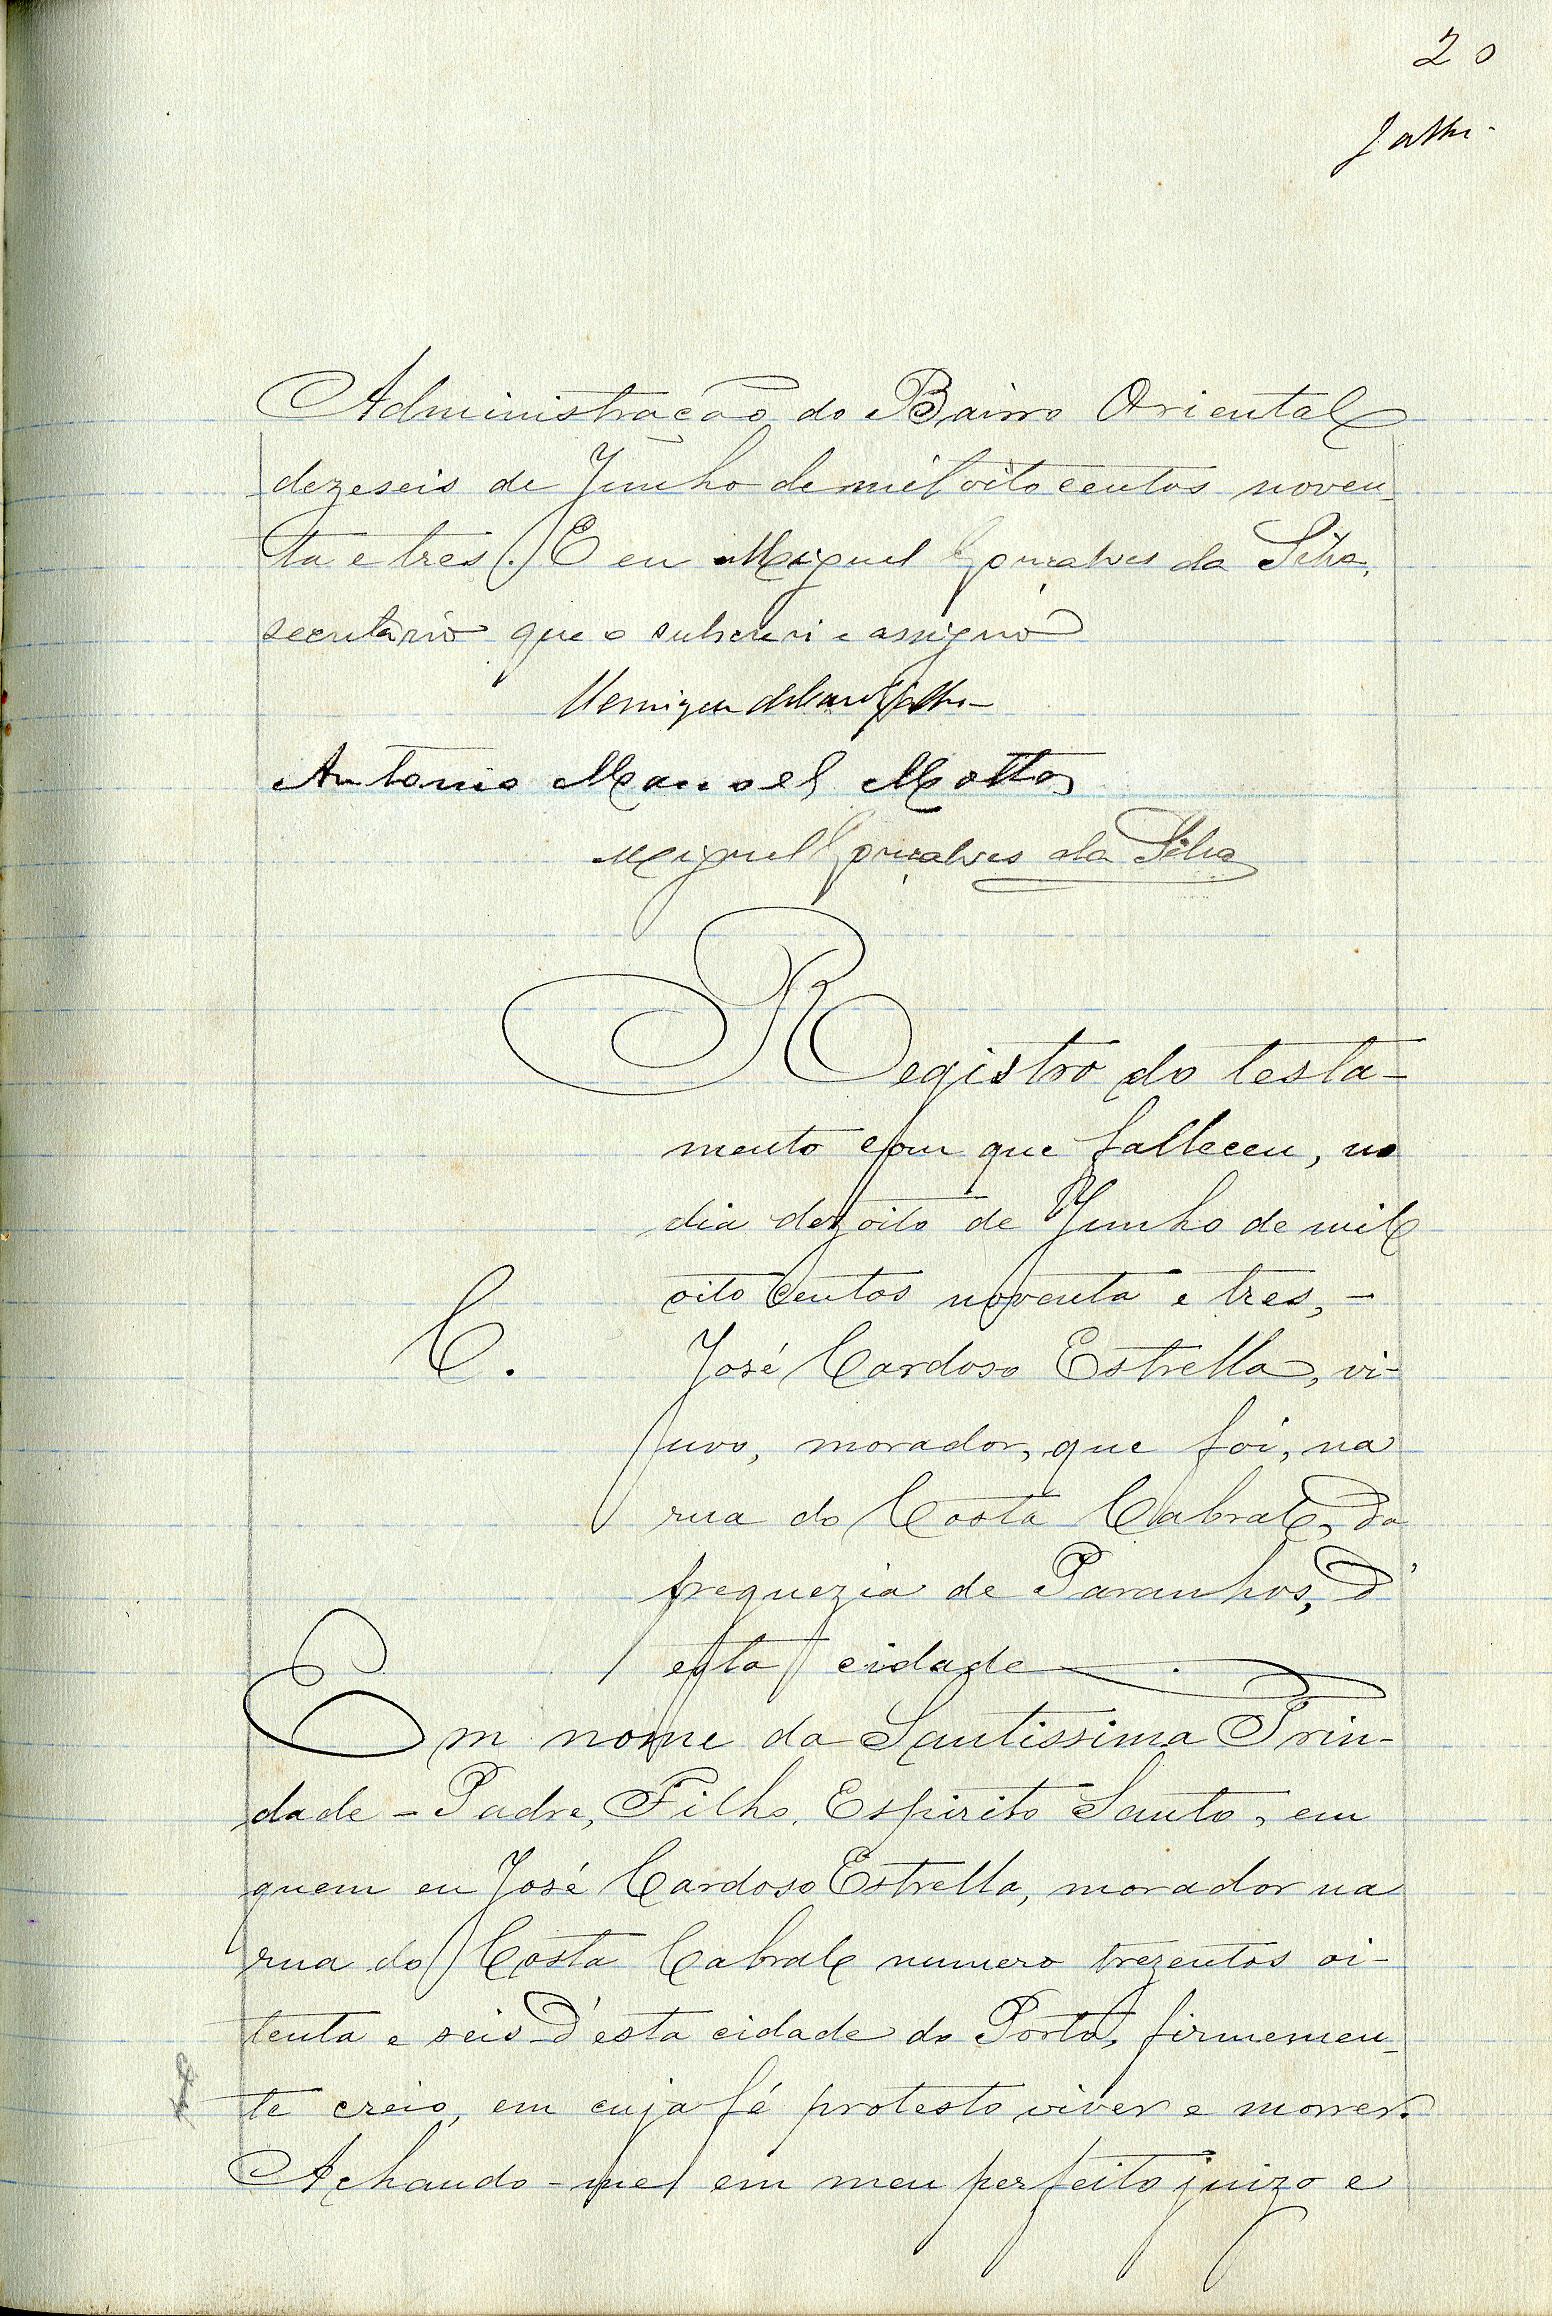 20
Administração do Bairro Oriental
dezeseis de Junho de mil oito centos noven-
ta e tres. E eu Miguel Gonçalves da Silva,
secretario que o subscrevi e assigno
Antonio Manoel Mattos
Miguel Gonçalves da Silva
Registro do testa-
mento com que falleceu, no
dia dezoito de Junho de mil
oito centos noventa e tres, -
C.
José Cardoso Estrella, vi-
uvo, morador, que foi, na
rua do Costa Cabral, da
freguezia de Paranhos, d'
esta cidade
Em nome da Santissima Trin-
dade - Padre, Filho, Espirito Santo, em
quem eu José Cardoso Estrella, morador na
rua do Costa Cabral numero trezentos oi-
tenta e seis d'esta cidade do Porto, firmemen-
te creio, em cuja fé protesto viver e morrer.
Achando-me em meu perfeito juizo e